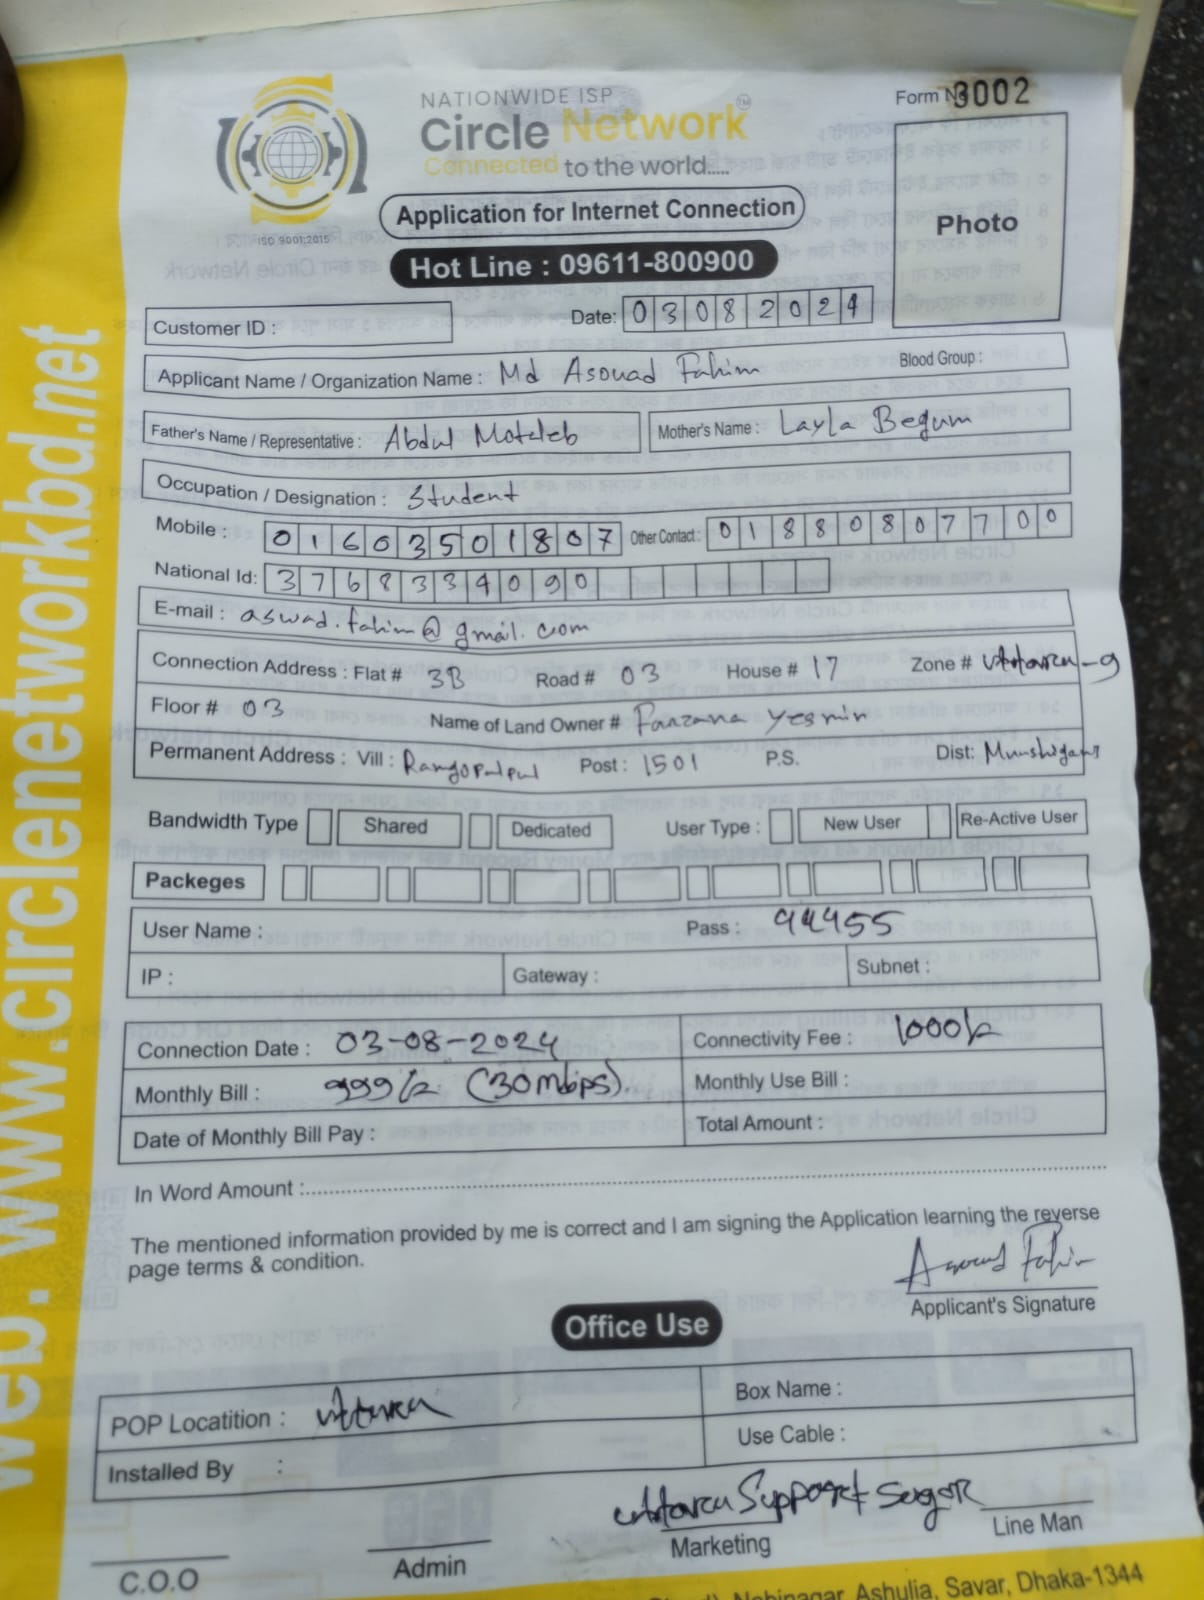 NATIONWIDE ISP
Circle Network
Connected to the world.....
ISO 9001:2015
Form No 3002
Photo
Application for Internet Connection
Hot Line : 09611-800900
Customer ID :
Date: 03082024
Applicant Name / Organization Name : Md Asouad Fahim Blood Group :
Father's Name / Representative : Abdul Motaleb Mother's Name : Layla Begum
Occupation / Designation : Student
Mobile : 01603501807 Other Contact : 01880807700
National Id: 3768334090
E-mail : aswad.fahim@gmail.com
Connection Address : Flat # 3B Road # 03 House # 17 Zone # Uttara-9
Floor # 03 Name of Land Owner # Farzana Yesmin
Permanent Address : Vill : Post : 1501 P.S. Dist: Munshiganj
Bandwidth Type Shared Dedicated User Type : New User Re-Active User
Packeges
User Name : Pass : 44455
IP : Gateway : Subnet :
Connection Date : 03-08-2024 Connectivity Fee : 1000/=
Monthly Bill : 999/= (30Mbps). Monthly Use Bill :
Date of Monthly Bill Pay : Total Amount :
In Word Amount :
The mentioned information provided by me is correct and I am signing the Application learning the reverse
page terms & condition.
Asouad Fahim
Applicant's Signature
Office Use
POP Locatition : Uttara Box Name :
Installed By : Use Cable :
Uttara Support Sagor
C.O.O Admin Marketing Line Man
Nobinagar, Ashulia, Savar, Dhaka-1344
web: www.circlenetworkbd.net